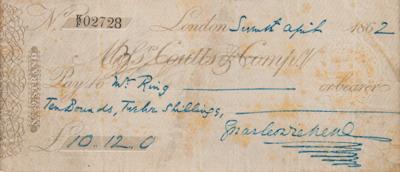 No. K/F 02728 London Seventh April 1862
Messrs. Coutts & Compy.
Pay to Mr Ring or bearer
Ten Pounds, Twelve Shillings,
£10.12.0 Charles Dickens